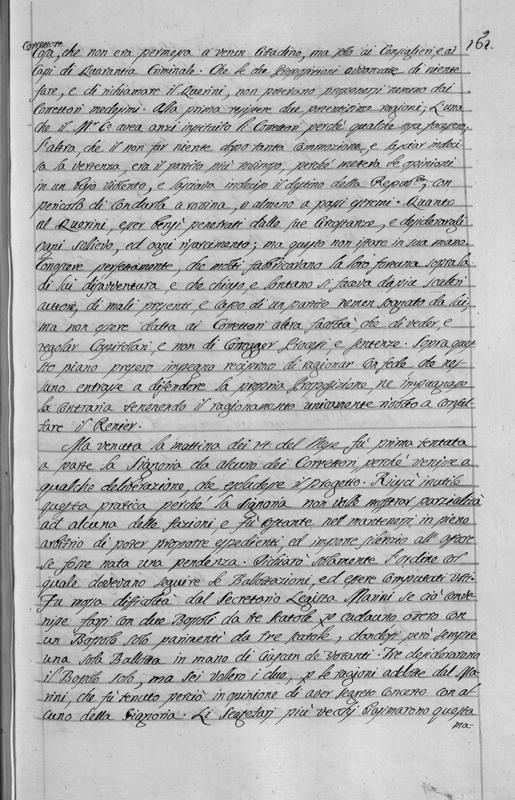 Correttore
162.
Cosa, che non era permessa a verun Cittadino, ma solo ai Consiglieri e ai
Capi di Quarantia Criminale. Che le due Proposizioni avvanzate di niente
fare, e di richiamare il Querini, non potevano proponersi nemmen dai
Correttori medesimi. Alla prima resistere due potentissime ragioni; L'una
che il M.r C.o avea anzi instituito li Correttori perché qualche cosa facessero;
L'altra, che il non far niente dopo tanta Commozione, e lasciar indeci-
sa la vertenza, era il partito più rovinoso, perché metteva le opinioni
in un urto violento, e lasciava indeciso il destino della Repub.ca, con
pericolo di Condurla a rovina, o almeno a passi estremi. Quanto
al Querini, esser bensì penetrati dalle sue Circostanze, e desiderargli
ogni sollievo, ed ogni risarcimento; ma questo non istare in sua mano.
Conoscere perfettamente, che molti fabbricavano la loro fortuna sopra la
di lui disavventura, e che chiuso, e lontano si faceva da più scaltri
autore, di mali presenti, e Capo di un partito nemen sognato da lui,
ma non essere data ai Correttori altra facoltà che di veder, e
regolar Capitolari, e non di Corregger Processi e sentenze. Sopra que-
sto piano presero impegno reciproco di ragionar Con fede che nes-
suno entrasse a difendere la propria Proposizione, ne impugnasse
la Contraria tenendo il ragionamento unicamente rivolto a confu-
tare il Renier.
Ma venuta la mattina dei 14 del Mese fù prima tentata
a parte la Signoria da alcuno dei Correttori, perché venisse a
qualche deliberazione, che escludesse il progetto. Riuscì inutile
questa pratica perché la Signoria non volle mostrar parzialità
ad alcuna delle fazioni e fù costante nel mantenersi in pieno
arbitrio di poter promettere espedienti, ed imporre silenzio all'affare
se fosse nata una pendenza. Dichiarò solamente l'ordine col
quale dovevano seguire le Ballottazioni, ed esser Computati Voti.
Fu mossa difficoltà dal Secretario Legista Marini se ciò conve-
nisse farsi con due Bossoli da tre scatole p cadauno overo con
un Bossolo solo parimenti da tre scatole, dandosi però sempre
una sola Ballotta in mano di Ciascun de Votanti. Tre desideravano
il Bossolo solo, ma sei vollero i due, p le ragioni addotte dal Ma-
rini, che fù tenuto perciò in opinione di aver segreto Concerto con al-
cuno della Signoria. Li Segretarj più vecchj biasimarono questa
ma-